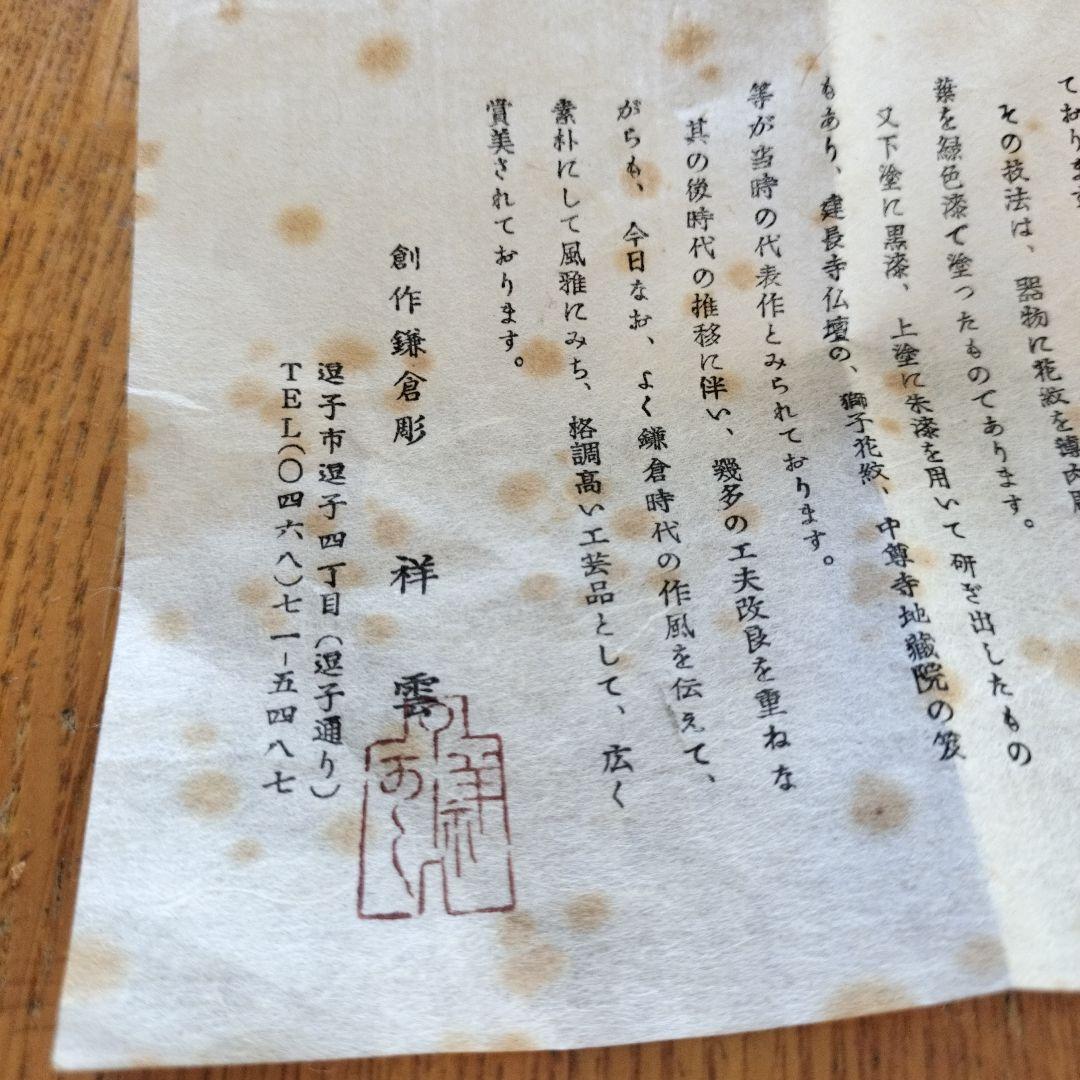 ております
その技法は、器物に花紋を薄肉彫
葉を緑色漆で塗ったものであります。
又下塗に黒漆、上塗に朱漆を用いて研ぎ出したもの
もあり、建長寺仏壇の、獅子花紋、中尊寺地蔵院の笈
等が当時の代表作とみられております。
其の後時代の推移に伴い、幾多の工夫改良を重ねな
がらも、今日なお、よく鎌倉時代の作風を伝えて、
素朴にして風雅にみち、格調高い工芸品として、広く
賞美されております。
創作鎌倉彫 祥雲
逗子市逗子四丁目(逗子通り)
TEL(〇四六八)七一-五四八七